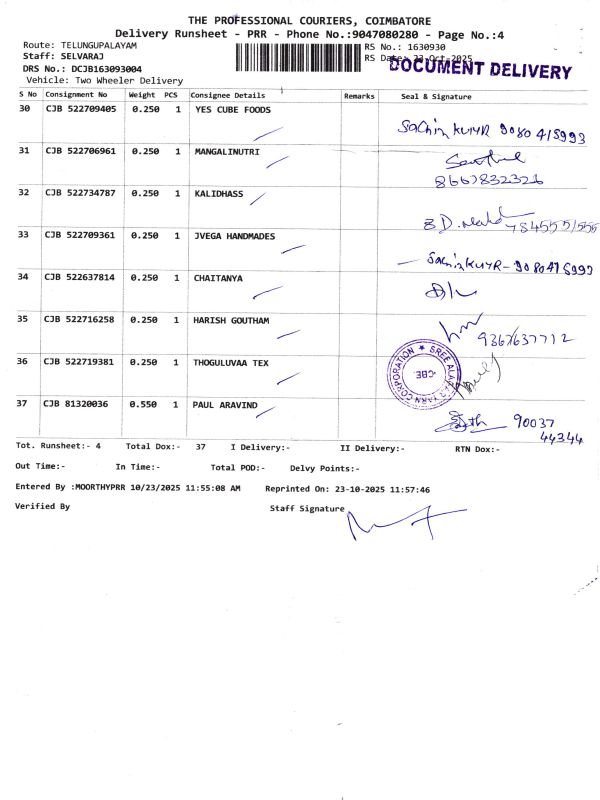 THE PROFESSIONAL COURIERS, COIMBATORE
Delivery Runsheet - PRR - Phone No.:9047080280 - Page No.:4
Route: TELUNGUPALAYAM
RS No.: 1630930
Staff: SELVARAJ
RS Date: 23-Oct-2025
DOCUMENT DELIVERY
DRS No.: DCJB163093004
Vehicle: Two Wheeler Delivery
S No Consignment No Weight PCS Consignee Details Remarks Seal & Signature
30 CJB 522709405 0.250 1 YES CUBE FOODS
9080415993
31 CJB 522706961 0.250 1 MANGALINUTRI
8667832326
32 CJB 522734787 0.250 1 KALIDHASS
33 CJB 522709361 0.250 1 JVEGA HANDMADES
34 CJB 522637814 0.250 1 CHAITANYA
35 CJB 522716258 0.250 1 HARISH GOUTHAM
9367637712
36 CJB 522719381 0.250 1 THOGULUVAA TEX
CORPORATION ★ SREE YARN
-CBE
37 CJB 81320036 0.550 1 PAUL ARAVIND
90037
44344
Tot. Runsheet:- 4 Total Dox:- 37 I Delivery:- II Delivery:- RTN Dox:-
Out Time:- In Time:- Total POD:- Delvy Points:-
Entered By :MOORTHYPRR 10/23/2025 11:55:08 AM Reprinted On: 23-10-2025 11:57:46
Verified By Staff Signature